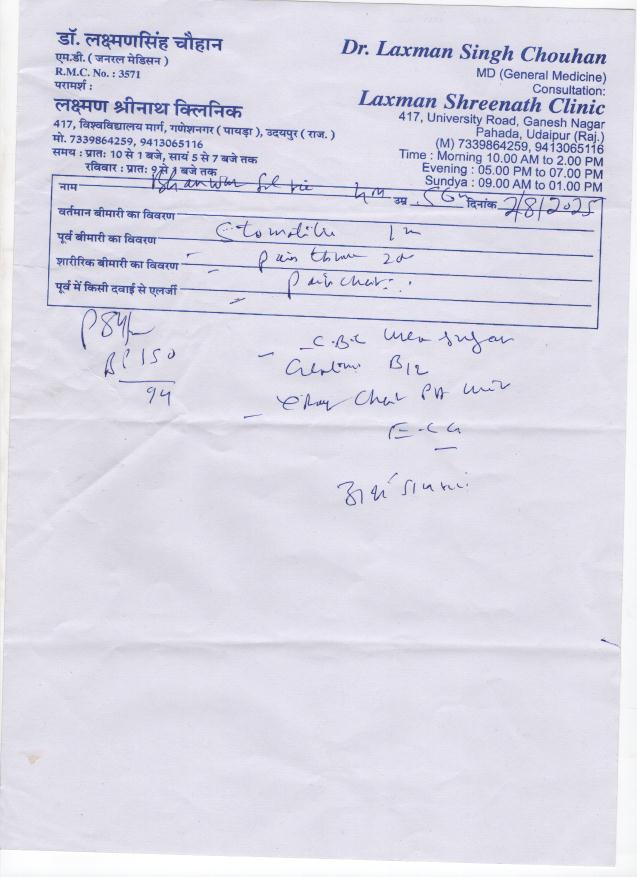 डॉ. लक्ष्मणसिंह चौहान
एम.डी. ( जनरल मेडिसन )
R.M.C. No. : 3571
परामर्श :
लक्ष्मण श्रीनाथ क्लिनिक
417, विश्वविद्यालय मार्ग, गणेशनगर ( पायड़ा ), उदयपुर ( राज. )
मो. 7339864259, 9413065116
समय : प्रातः 10 से 1 बजे, सायं 5 से 7 बजे तक
रविवार : प्रातः 9 से 1 बजे तक
Dr. Laxman Singh Chouhan
MD (General Medicine)
Consultation:
Laxman Shreenath Clinic
417, University Road, Ganesh Nagar
Pahada, Udaipur (Raj.)
(M) 7339864259, 9413065116
Time : Morning 10.00 AM to 2.00 PM
Evening : 05.00 PM to 07.00 PM
Sundya : 09.00 AM to 01.00 PM
नाम उम्र दिनांक 2/8/2025
वर्तमान बीमारी का विवरण
पूर्व बीमारी का विवरण
शारीरिक बीमारी का विवरण Pain
पूर्व में किसी दवाई से एलर्जी Pain
BP 150
94
C.B.C Sugar
B12
Xray Chest PA
E.C.G